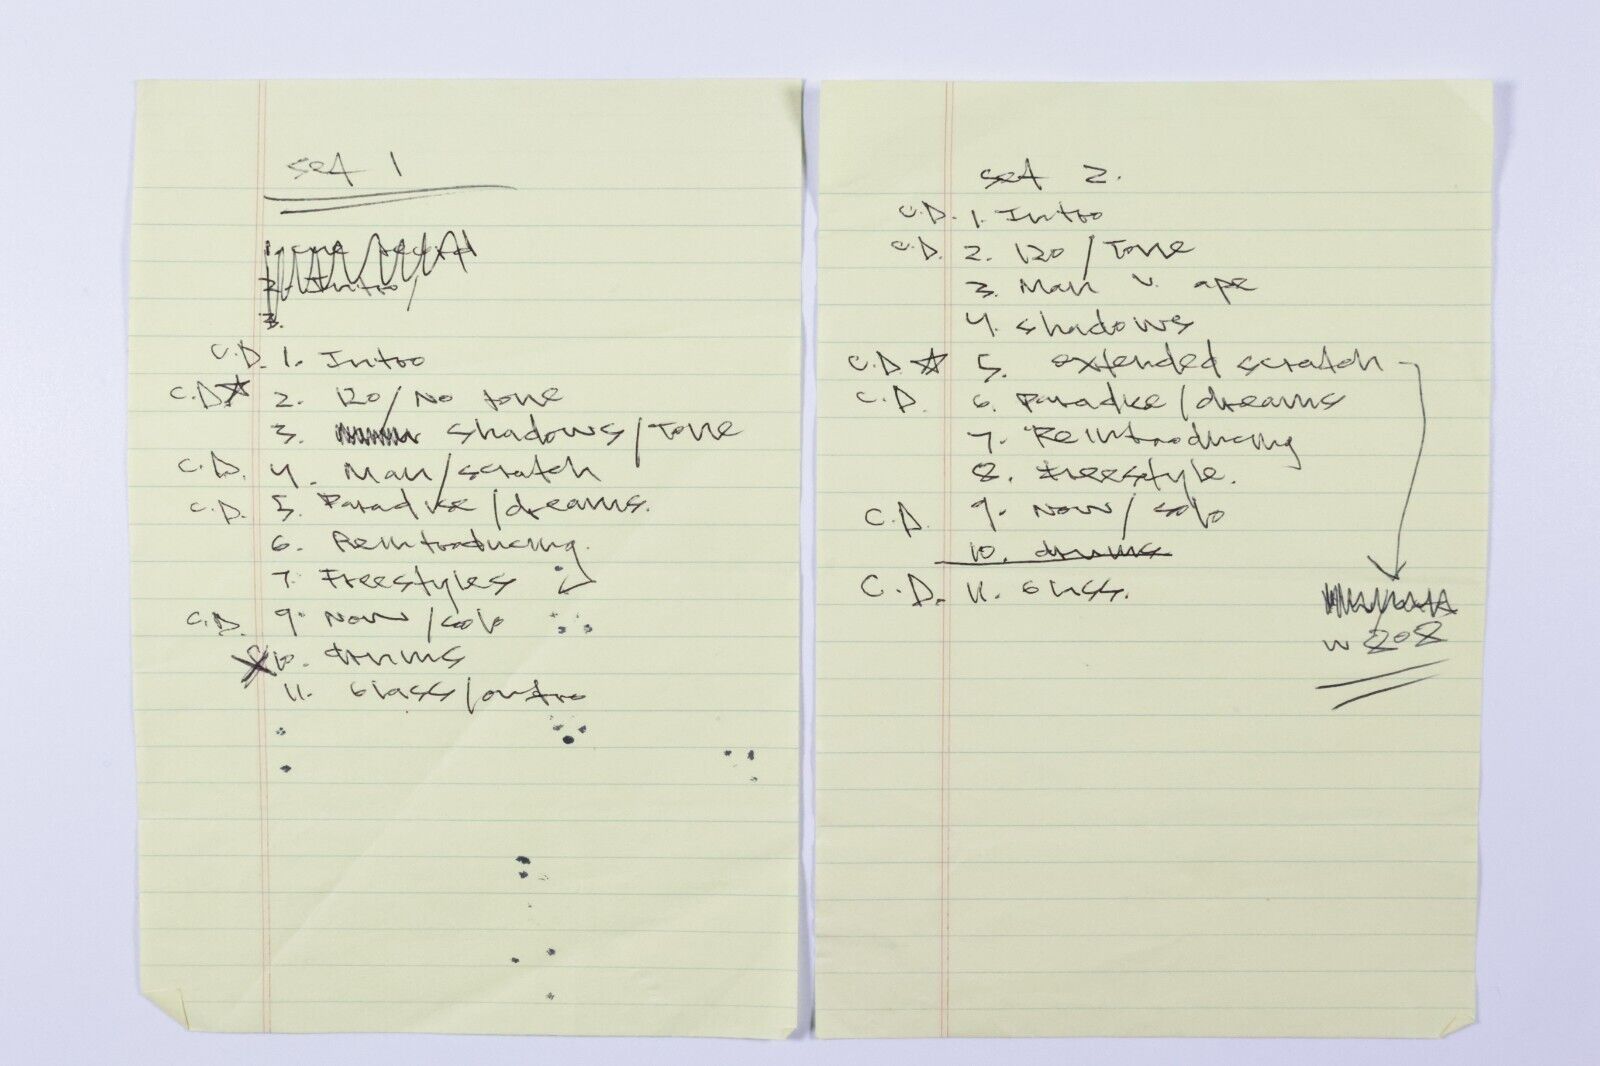 set 1
2. Intro
3.
C.D. 1. Intro
C.D☆ 2. 120/No tone
3. shadows/Tone
C.D. 4. Man/scratch
C.D. 5. Paradise/dreams.
6. Reintroducing.
7. Freestyles
C.D. 9. Now/solo
X 10. drums
11. Glass/outro
set 2.
C.D. 1. Intro
C.D. 2. 120/Tone
3. Man v. ape
4. shadows
C.D.☆ 5. extended scratch
C.D. 6. Paradise/dreams
7. Reintroducing
8. Freestyle.
C.D. 9. Now/solo
10. drums
C.D. 11. Glass.
w 808